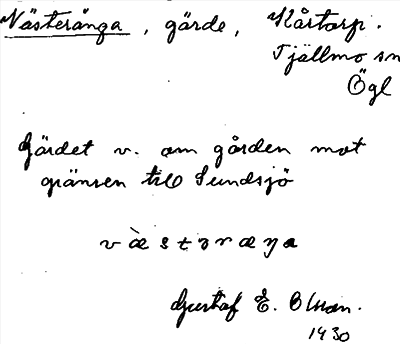 Västerånga, gärde, Kårtorp.
Tjällmo sn
Ögl
Gärdet v. om gården mot
gränsen till Sundsjö
væ̀stəræŋa
Gustaf E. Olsson.
1930